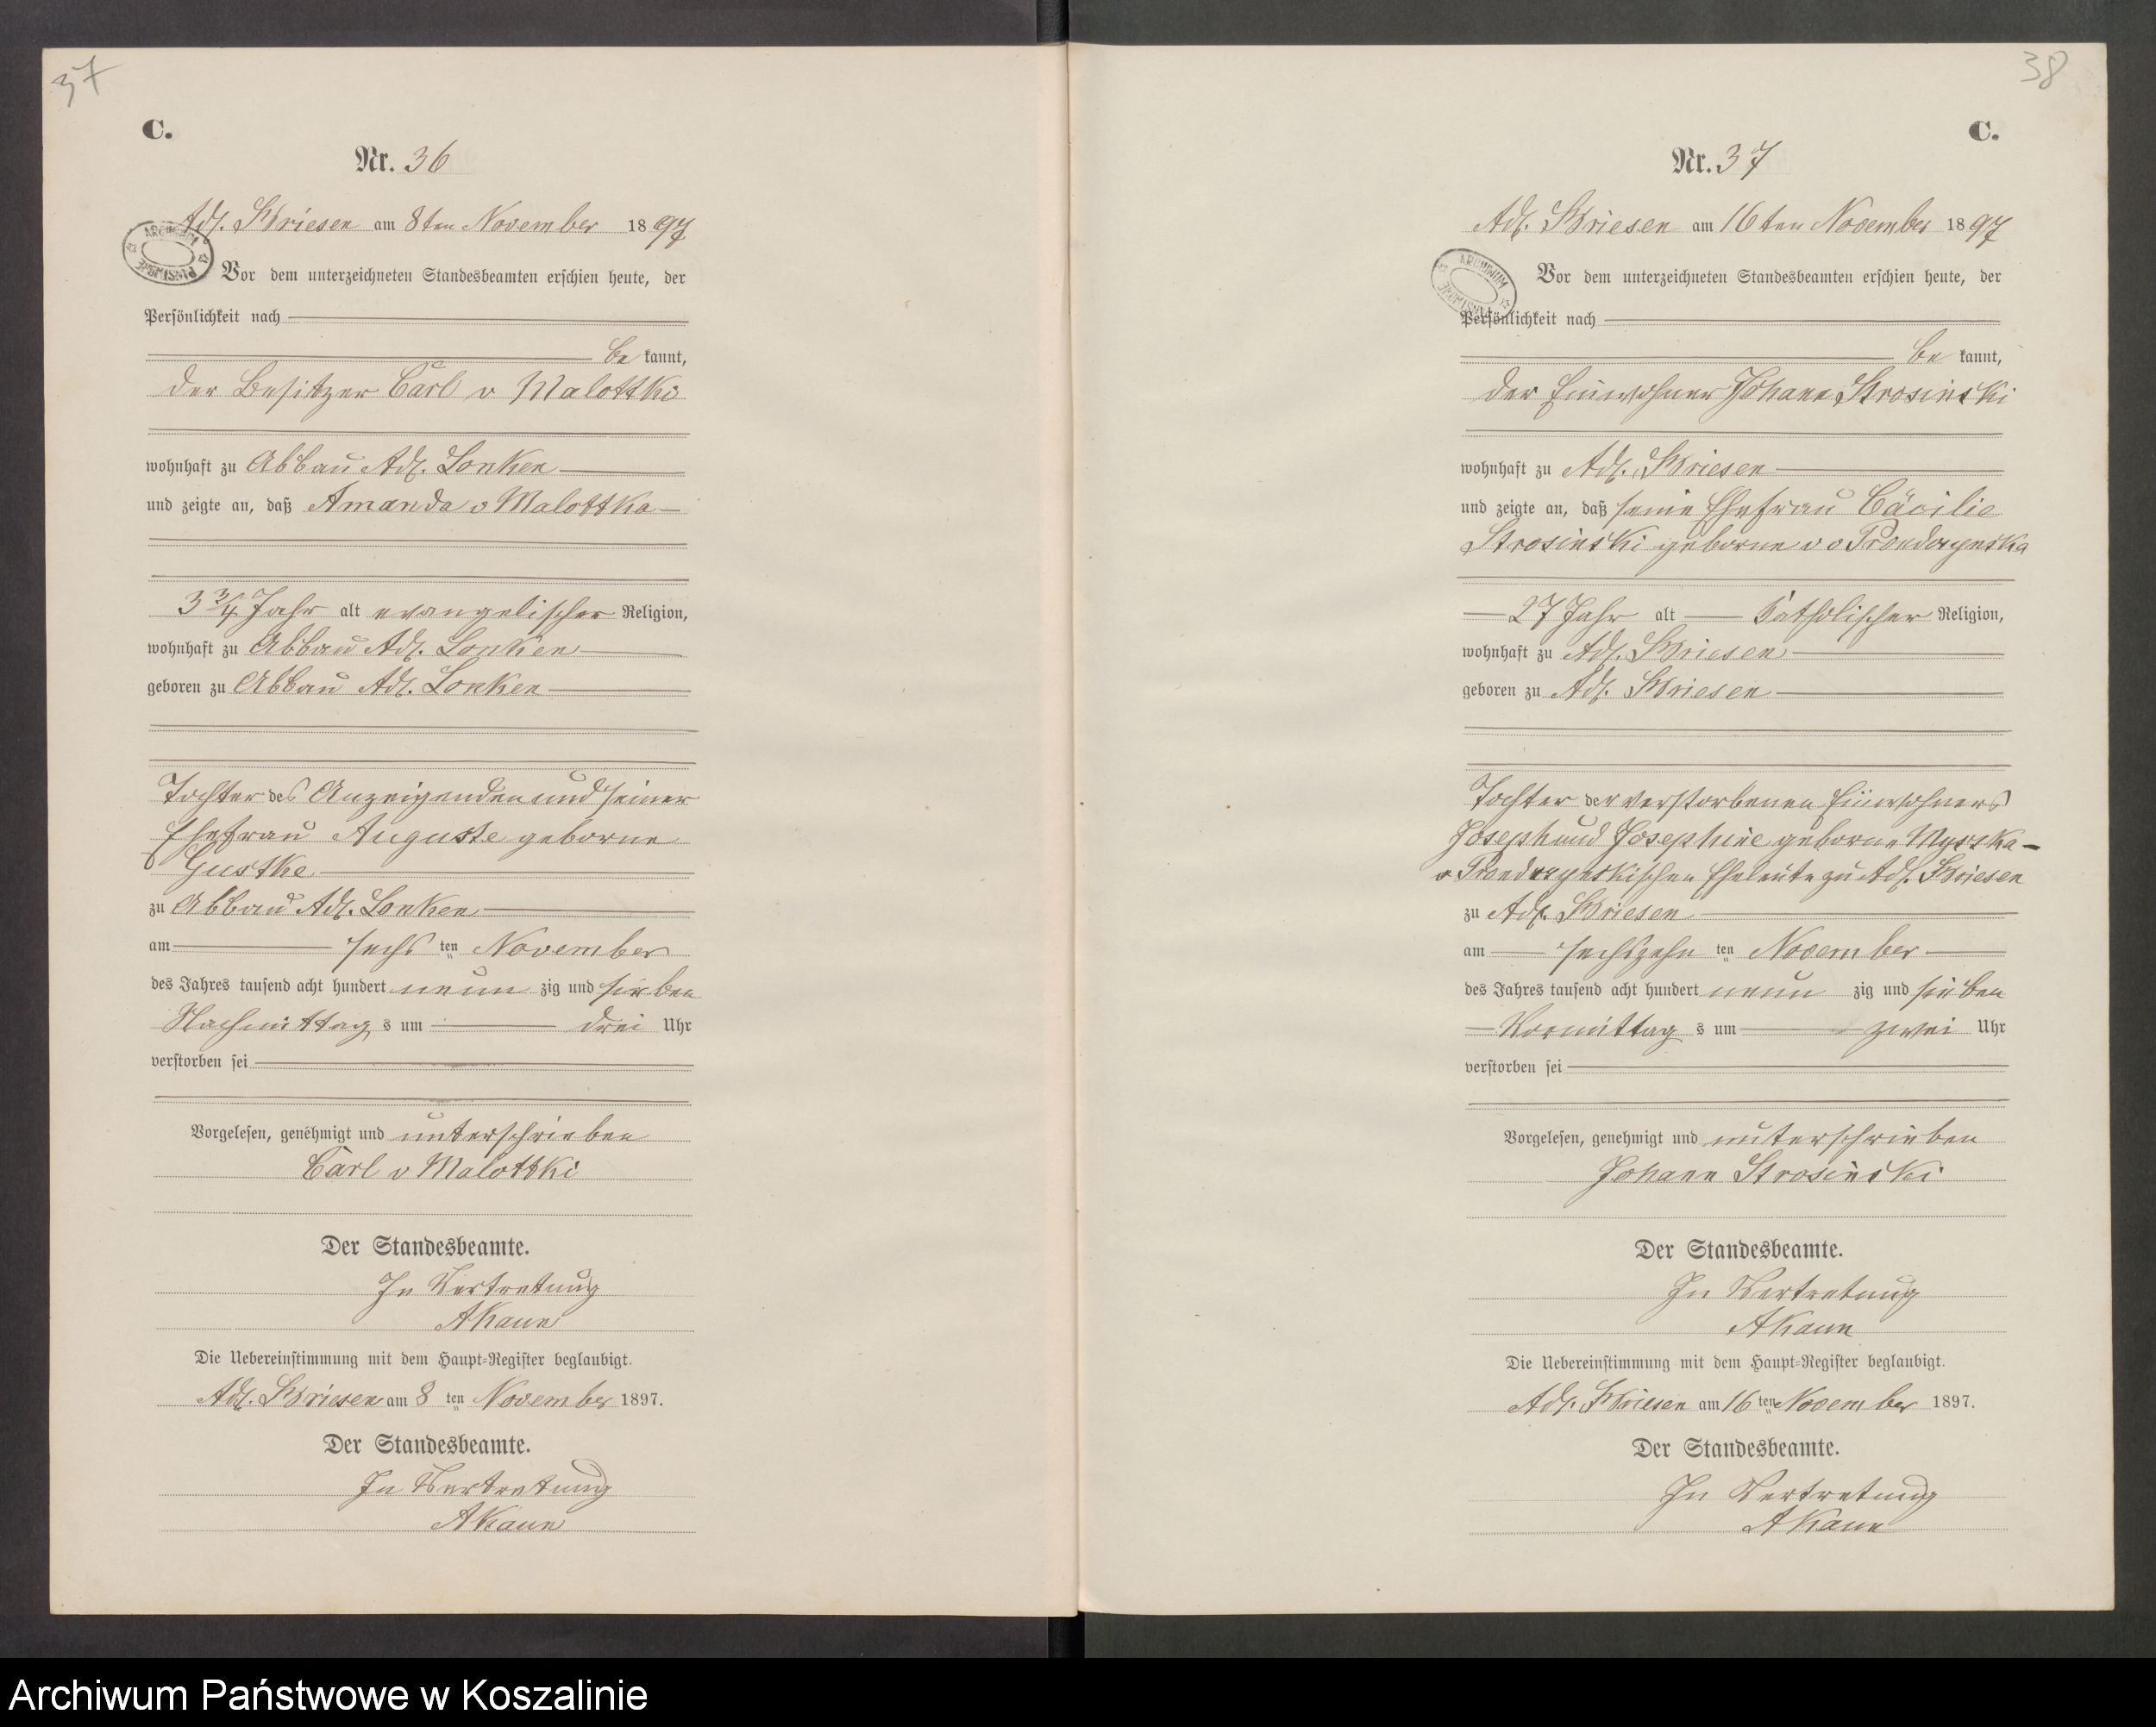 37
C.
Nr. 36
Adl. Briesen am 8ten November 1897
ARCHIWUM PAŃSTWOWE
Vor dem unterzeichneten Standesbeamten erschien heute, der
Persönlichkeit nach
be kannt,
der Besitzer Carl v Malottki
wohnhaft zu Abbau Adl. Lonken
und zeigte an, daß Amanda v Malottka
3 3/4 Jahr alt evangelischer Religion,
wohnhaft zu Abbau Adl. Lonken
geboren zu Abbau Adl. Lonken
Tochter des Anzeigenden und seiner
Ehefrau Auguste geborne
Gustke
zu Abbau Adl. Lonken
am sechs ten November
des Jahres tausend acht hundert neun zig und sieben
Nachmittag s um drei Uhr
verstorben sei
Vorgelesen, genehmigt und unterschrieben
Carl v Malottki
Der Standesbeamte.
In Vertretung
AKaun
Die Uebereinstimmung mit dem Haupt-Register beglaubigt.
Adl. Briesen am 8 ten November 1897.
Der Standesbeamte.
In Vertretung
AKaun
38
C.
Nr. 37
Adl. Briesen am 16ten November 1897
ARCHIWUM PAŃSTWOWE
Vor dem unterzeichneten Standesbeamten erschien heute, der
Persönlichkeit nach
be kannt,
der Einwohner Johann Strosinski
wohnhaft zu Adl. Briesen
und zeigte an, daß seine Ehefrau Cäcilie
Strosinski geborne v
27 Jahr alt katholischer Religion,
wohnhaft zu Adl. Briesen
geboren zu Adl. Briesen
Tochter der verstorbenen Einwohners
Joseph und Josephine geborne
Eheleute zu Adl. Briesen
zu Adl. Briesen
am sechszehn ten November
des Jahres tausend acht hundert neun zig und sieben
Vormittag s um zwei Uhr
verstorben sei
Vorgelesen, genehmigt und unterschrieben
Johann Strosinski
Der Standesbeamte.
In Vertretung
AKaun
Die Uebereinstimmung mit dem Haupt-Register beglaubigt.
Adl. Briesen am 16 ten November 1897.
Der Standesbeamte.
In Vertretung
AKaun
Archiwum Państwowe w Koszalinie